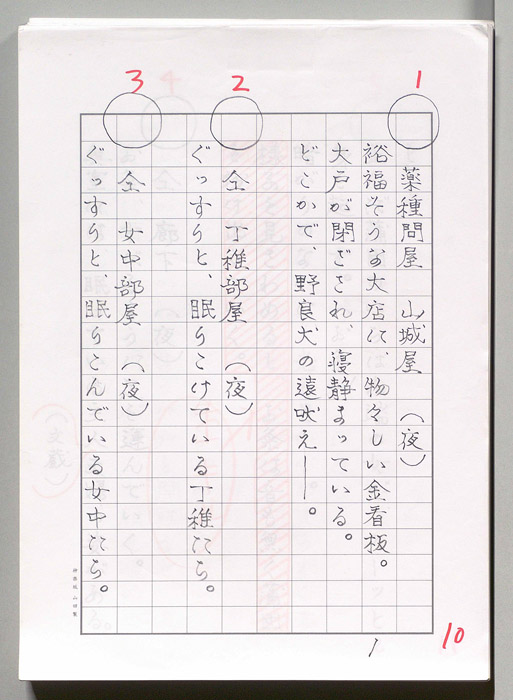 1
薬種問屋　山城屋　(夜)
裕福そうな大店に、物々しい金看板。
大戸が閉ざされ、寝静まっている。
どこかで、野良犬の遠吠え――。
2
仝　丁稚部屋　(夜)
ぐっすりと、眠りこけている丁稚たち。
3
仝　女中部屋　(夜)
ぐっすりと、眠りこんでいる女中たち。
1
10